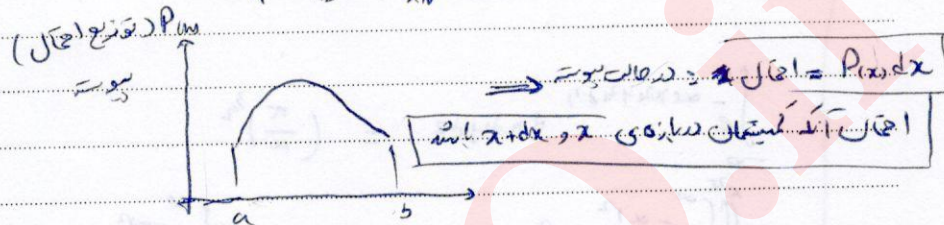 P(x) (توزیع احتمال)
پیوسته
⟹ در حالت پیوسته : احتمال x = P(x) dx
احتمال آنکه کمیتمان در بازه‌ی x و x+dx باشد
a b